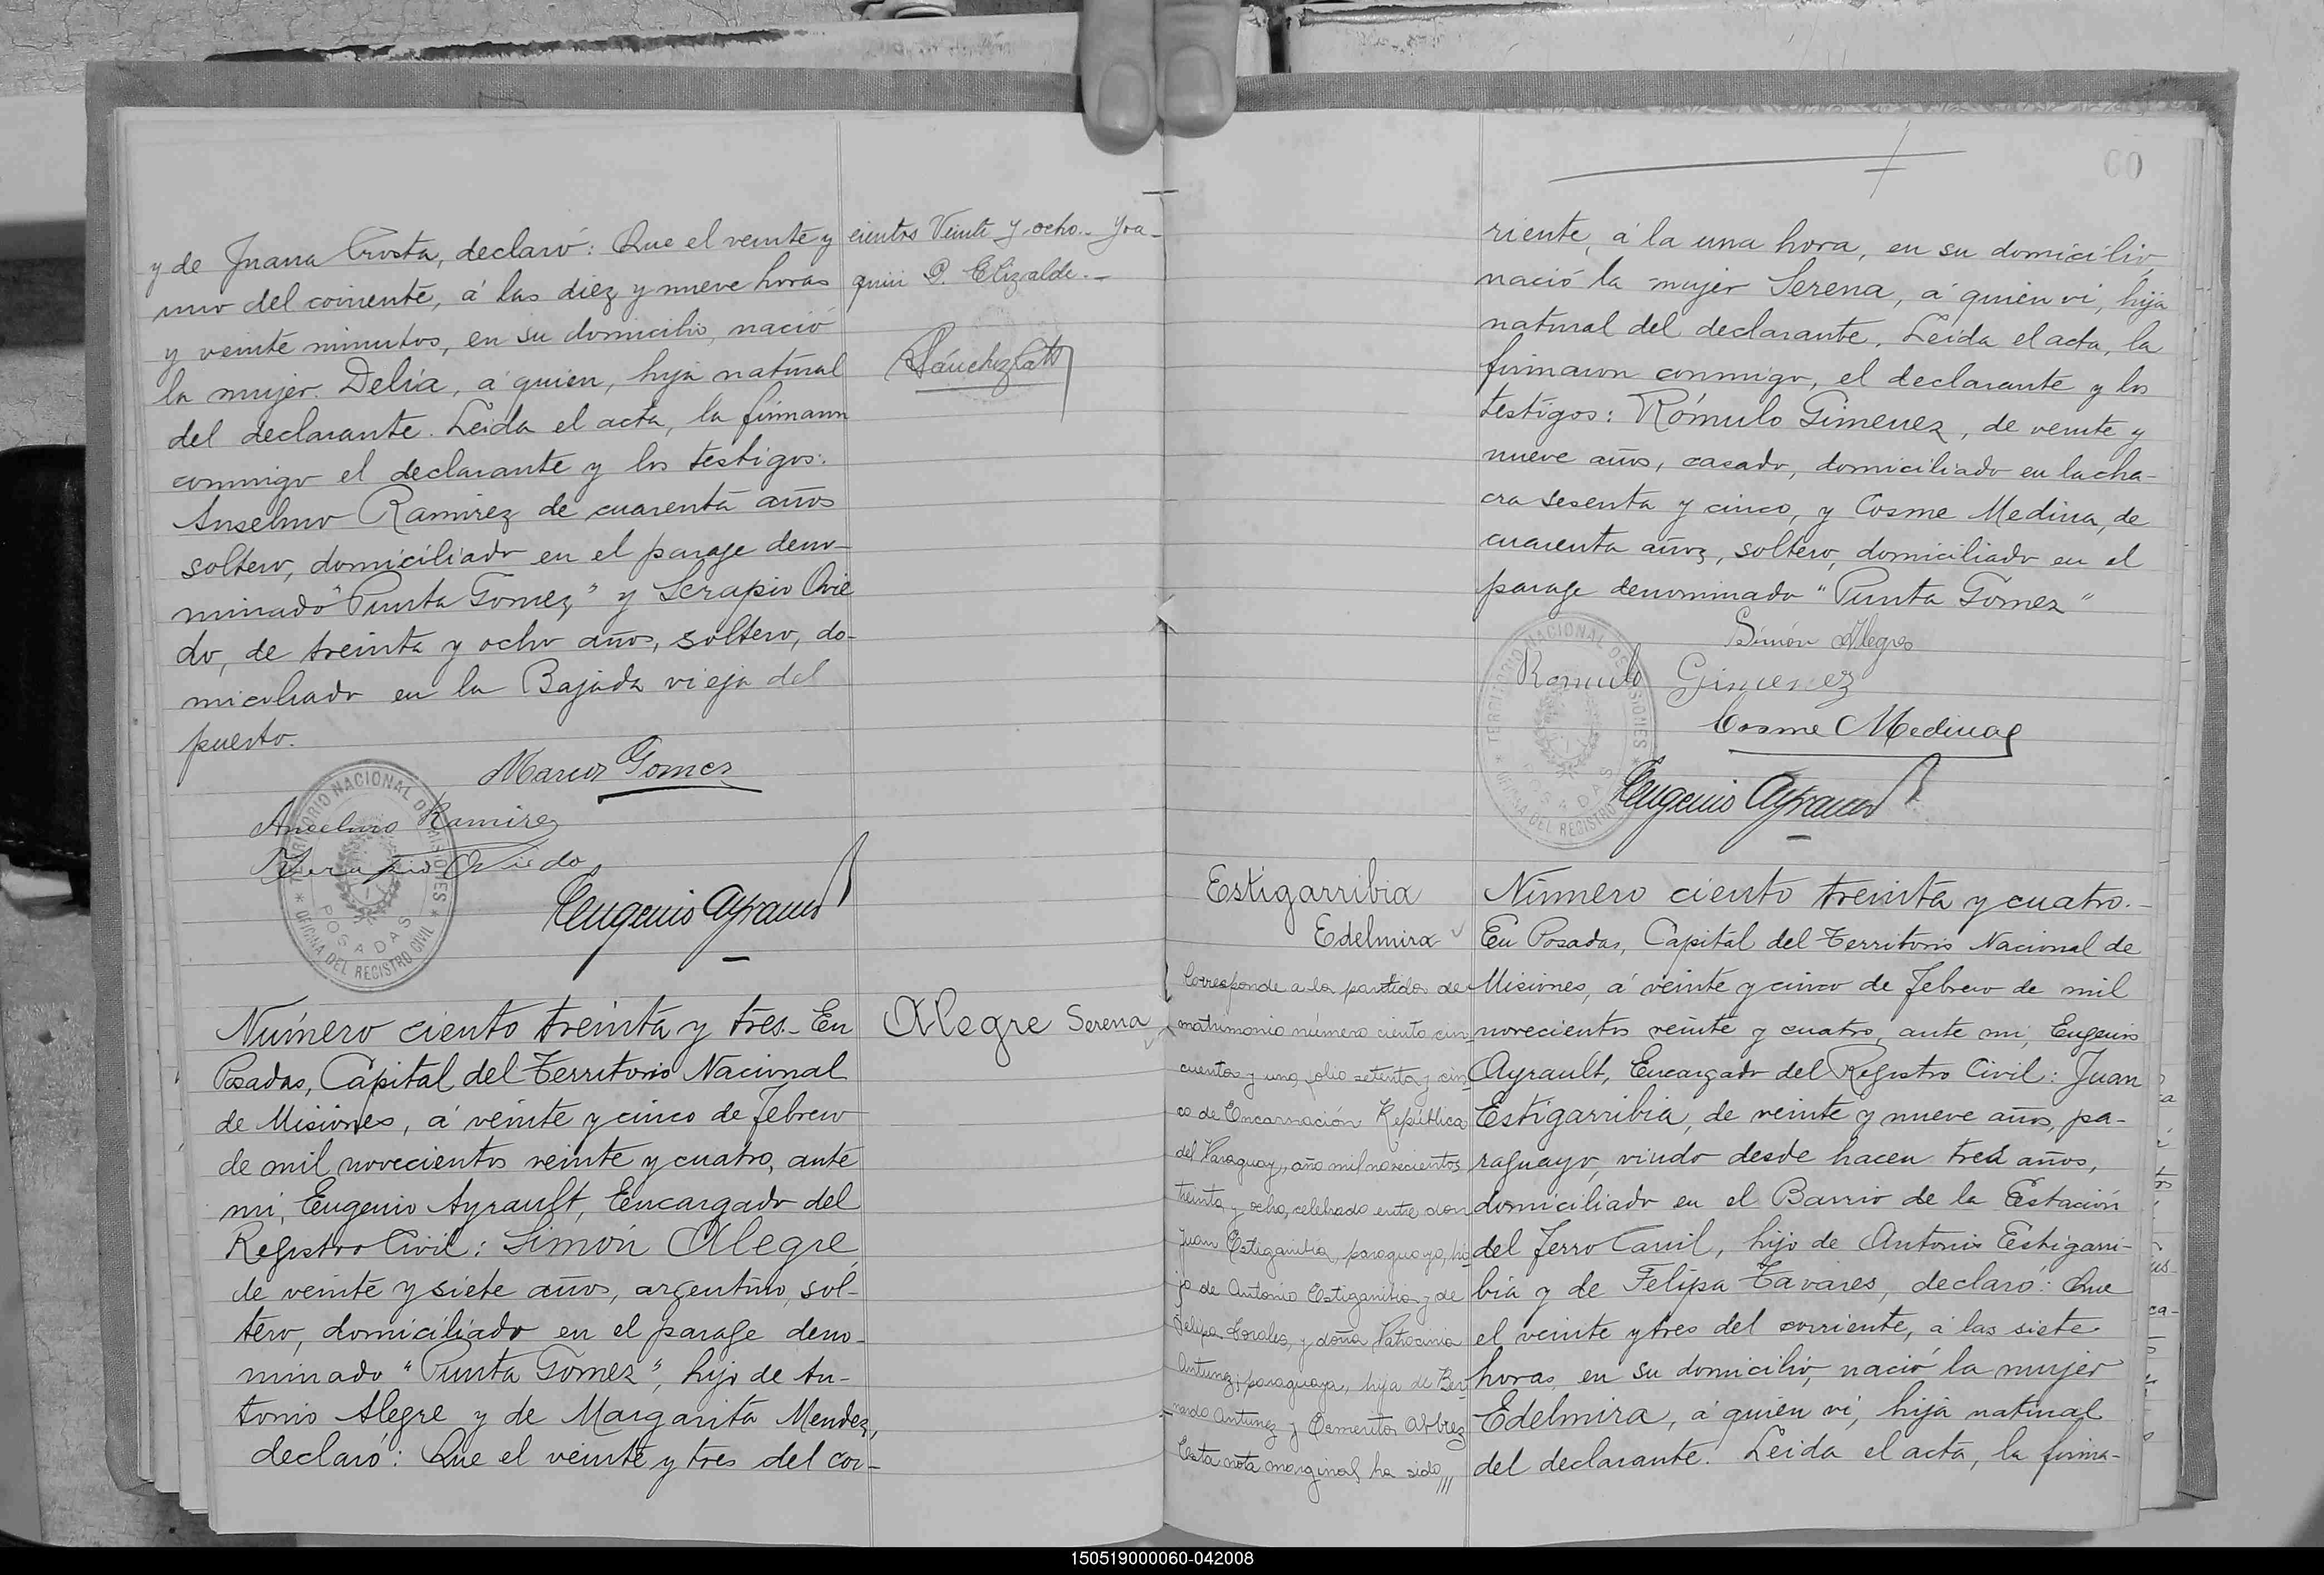 y de Juana Costa, declaró: Que el veinte y
uno del corriente, á las diez y nueve horas
y veinte minutos, en su domicilio, nació
la mujer Delia, á quien, hija natural
del declarante. Leida el acta, la firmaron
conmigo el declarante y los testigos:
Anselmo Ramirez de cuarenta años
soltero, domiciliado en el parage deno-
minado "Punta Gomez," y Serapio Ovie
do, de treinta y ocho años, soltero, do-
miciliado en la Bajada vieja del
puerto.
Marcos Gomez
Anselmo Ramirez
Serapio Oviedo
Eugenio Ayrault
TERRITORIO NACIONAL DE MISIONES
POSADAS
OFICINA DEL REGISTRO CIVIL
cientos Veinte y ocho.- Joa-
quin P. Elizalde.-
Número ciento treinta y tres.- En
Posadas, Capital del Territorio Nacional
de Misiones, á veinte y cinco de Febrero
de mil novecientos veinte y cuatro, ante
mi, Eugenio Ayrault, Encargado del
Registro Civil: Simón Alegre,
de veinte y siete años, argentino, sol-
tero, domiciliado en el parage deno-
minado "Punta Gomez", hijo de An-
tonio Alegre y de Margarita Mendez,
declaró: Que el veinte y tres del cor-
Alegre Serena
60
riente, á la una hora, en su domicilio,
nació la mujer Serena, á quien vi, hija
natural del declarante. Leida el acta, la
firmaron conmigo, el declarante y los
testigos: Rómulo Gimenez, de veinte y
nueve años, casado, domiciliado en la cha-
cra sesenta y cinco, y Cosme Medina, de
cuarenta años, soltero, domiciliado en el
parage denominado "Punta Gomez"
Simón Alegre
Romulo Gimenez
Cosme Medina
Eugenio Ayrault
TERRITORIO NACIONAL DE MISIONES
POSADAS
OFICINA DEL REGISTRO
Estigarribia
Edelmira
Corresponde a la partida de
matrimonio número ciento cin
cuenta y uno folio setenta y cin
co de Encarnación República
del Paraguay, año mil novecientos
treinta y ocho, celebrado entre don
Juan Estigarribia, paraguayo, hi
jo de Antonio Estigarribia y de
Felipa Corales, y doña Patrocinia
Antunez, paraguaya, hija de Ber
nardo Antunez y
Esta nota marginal ha sido
Número ciento treinta y cuatro.-
En Posadas, Capital del Territorio Nacional de
Misiones, á veinte y cinco de Febrero de mil
novecientos veinte y cuatro, ante mi, Eugenio
Ayrault, Encargado del Registro Civil: Juan
Estigarribia, de veinte y nueve años, pa-
raguayo, viudo desde hacen tres años,
domiciliado en el Barrio de la Estación
del Ferro Carril, hijo de Antonio Estigarri-
bia y de Felipa Tavares, declaró: Que
el veinte y tres del corriente, á las siete
horas, en su domicilio, nació la mujer
Edelmira, á quien vi, hija natural
del declarante. Leida el acta, la firma-
150519000060-042008